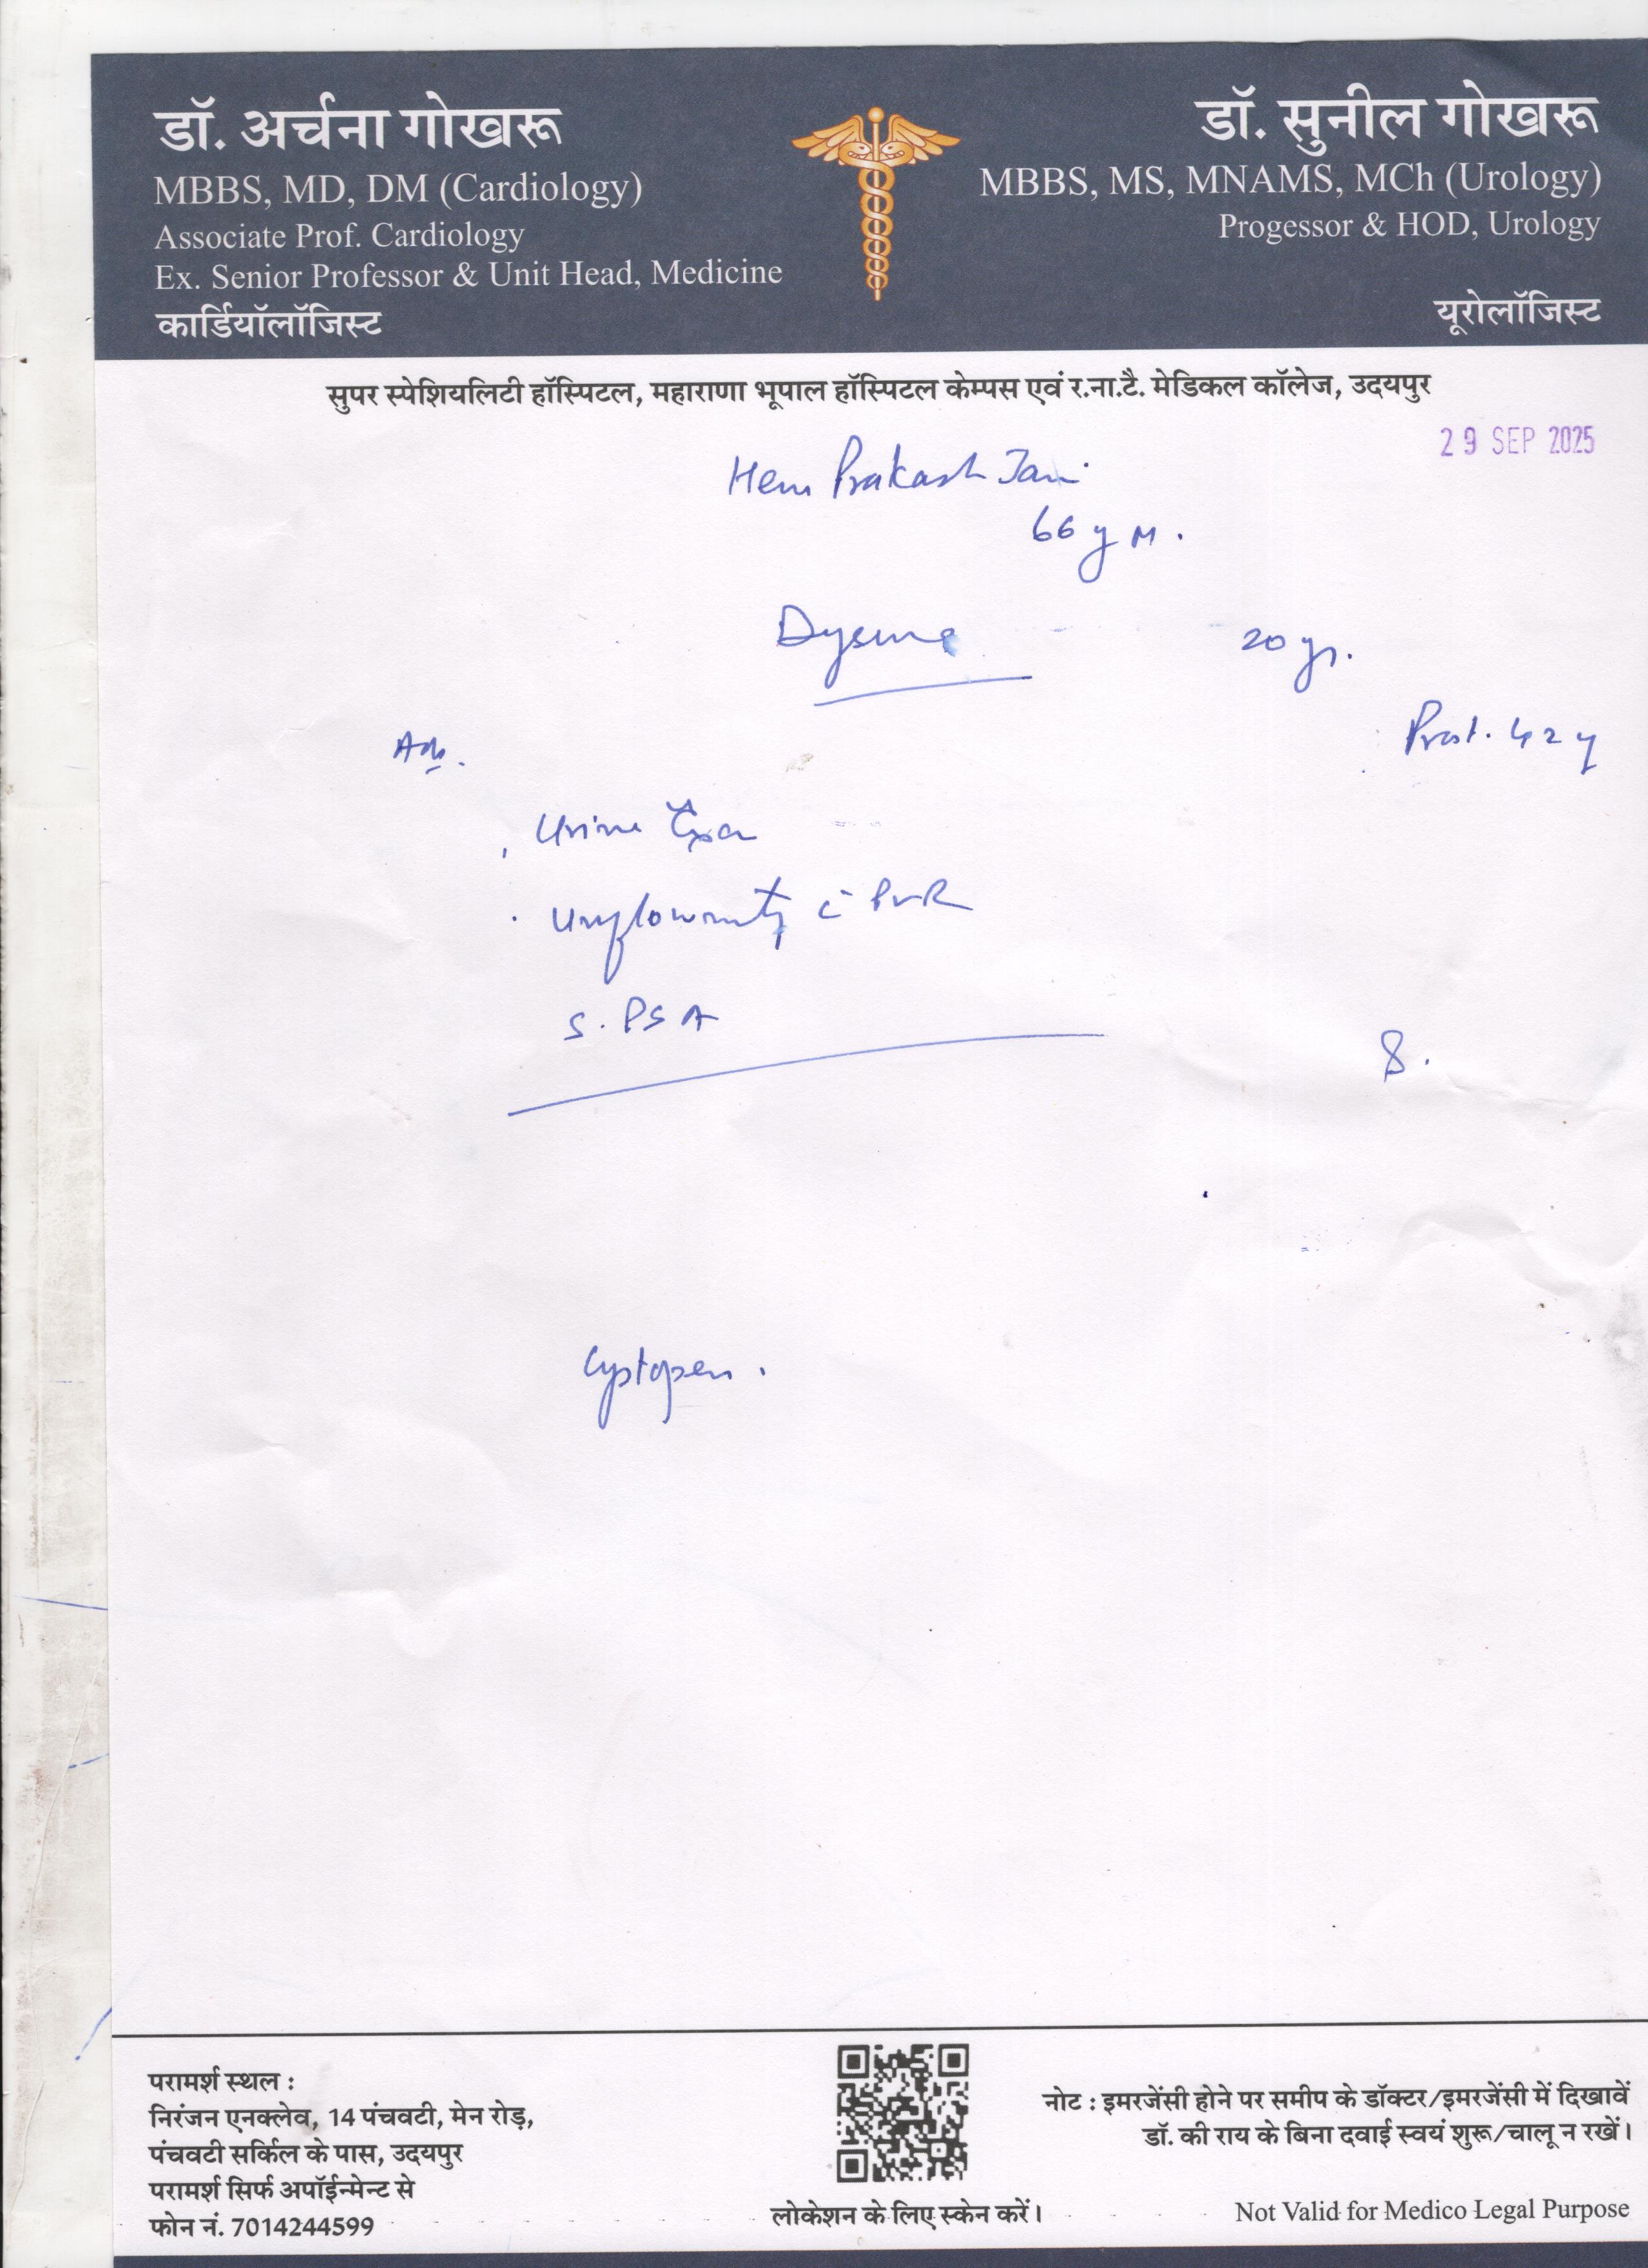 डॉ. अर्चना गोखरू
MBBS, MD, DM (Cardiology)
Associate Prof. Cardiology
Ex. Senior Professor & Unit Head, Medicine
कार्डियॉलॉजिस्ट
डॉ. सुनील गोखरू
MBBS, MS, MNAMS, MCh (Urology)
Progessor & HOD, Urology
यूरोलॉजिस्ट
सुपर स्पेशियलिटी हॉस्पिटल, महाराणा भूपाल हॉस्पिटल केम्पस एवं र.ना.टै. मेडिकल कॉलेज, उदयपुर
29 SEP 2025
Hem Prakash
66 y M.
20 yr.
Prost. 42 g
Urine
Uroflowmetry c̄ PVR
S. PSA
परामर्श स्थल :
निरंजन एनक्लेव, 14 पंचवटी, मेन रोड़,
पंचवटी सर्किल के पास, उदयपुर
परामर्श सिर्फ अपॉईन्मेन्ट से
फोन नं. 7014244599
लोकेशन के लिए स्केन करें।
नोट : इमरजेंसी होने पर समीप के डॉक्टर/इमरजेंसी में दिखावें
डॉ. की राय के बिना दवाई स्वयं शुरू/चालू न रखें।
Not Valid for Medico Legal Purpose